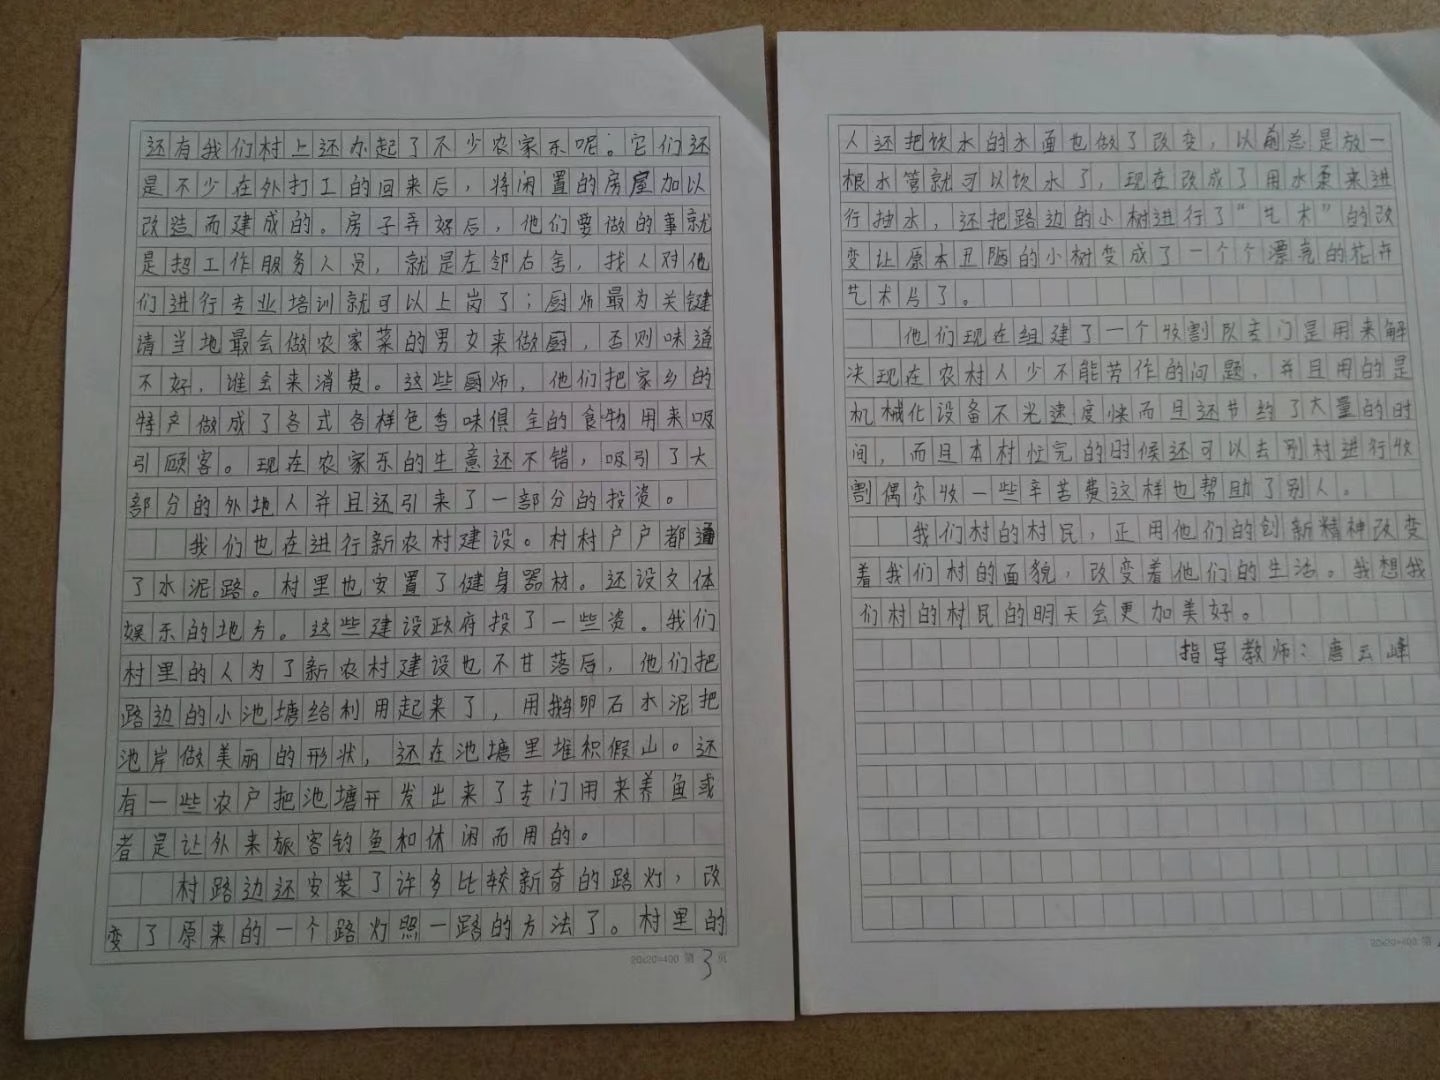 还有我们村上还办起了不少农家乐呢。它们还
是不少在外打工的回来后，将闲置的房屋加以
改造而建成的。房子弄好后，他们要做的事就
是招工作服务人员，就是左邻右舍，找人对他
们进行专业培训就可以上岗了；厨师最为关键
请当地最会做农家菜的男女来做厨，否则味道
不好，谁会来消费。这些厨师，他们把家乡的
特产做成了各式各样色香味俱全的食物用来吸
引顾客。现在农家乐的生意还不错，吸引了大
部分的外地人并且还引来了一部分的投资。
我们也在进行新农村建设。村村户户都通
了水泥路。村里也安置了健身器材。还设文体
娱乐的地方。这些建设政府投了一些资。我们
村里的人为了新农村建设也不甘落后，他们把
路边的小池塘给利用起来了，用鹅卵石水泥把
池岸做美丽的形状，还在池塘里堆积假山。还
有一些农户把池塘开发出来了专门用来养鱼或
者是让外来旅客钓鱼和休闲而用的。
村路边还安装了许多比较新奇的路灯，改
变了原来的一个路灯照一路的方法了。村里的
20x20=400 第3页
人还把饮水的水面也做了改变，以前总是放一
根水管就可以饮水了，现在改成了用水泵来进
行抽水，还把路边的小树进行了“艺术”的改
变让原本丑陋的小树变成了一个个漂亮的花卉
艺术片了。
他们现在组建了一个收割队专门是用来解
决现在农村人少不能劳作的问题，并且用的是
机械化设备不光速度快而且还节约了大量的时
间，而且本村忙完的时候还可以去别村进行收
割偶尔收一些辛苦费这样也帮助了别人。
我们村的村民，正用他们的创新精神改变
着我们村的面貌，改变着他们的生活。我想我
们村的村民的明天会更加美好。
指导教师：唐云峰
20x20=400 第